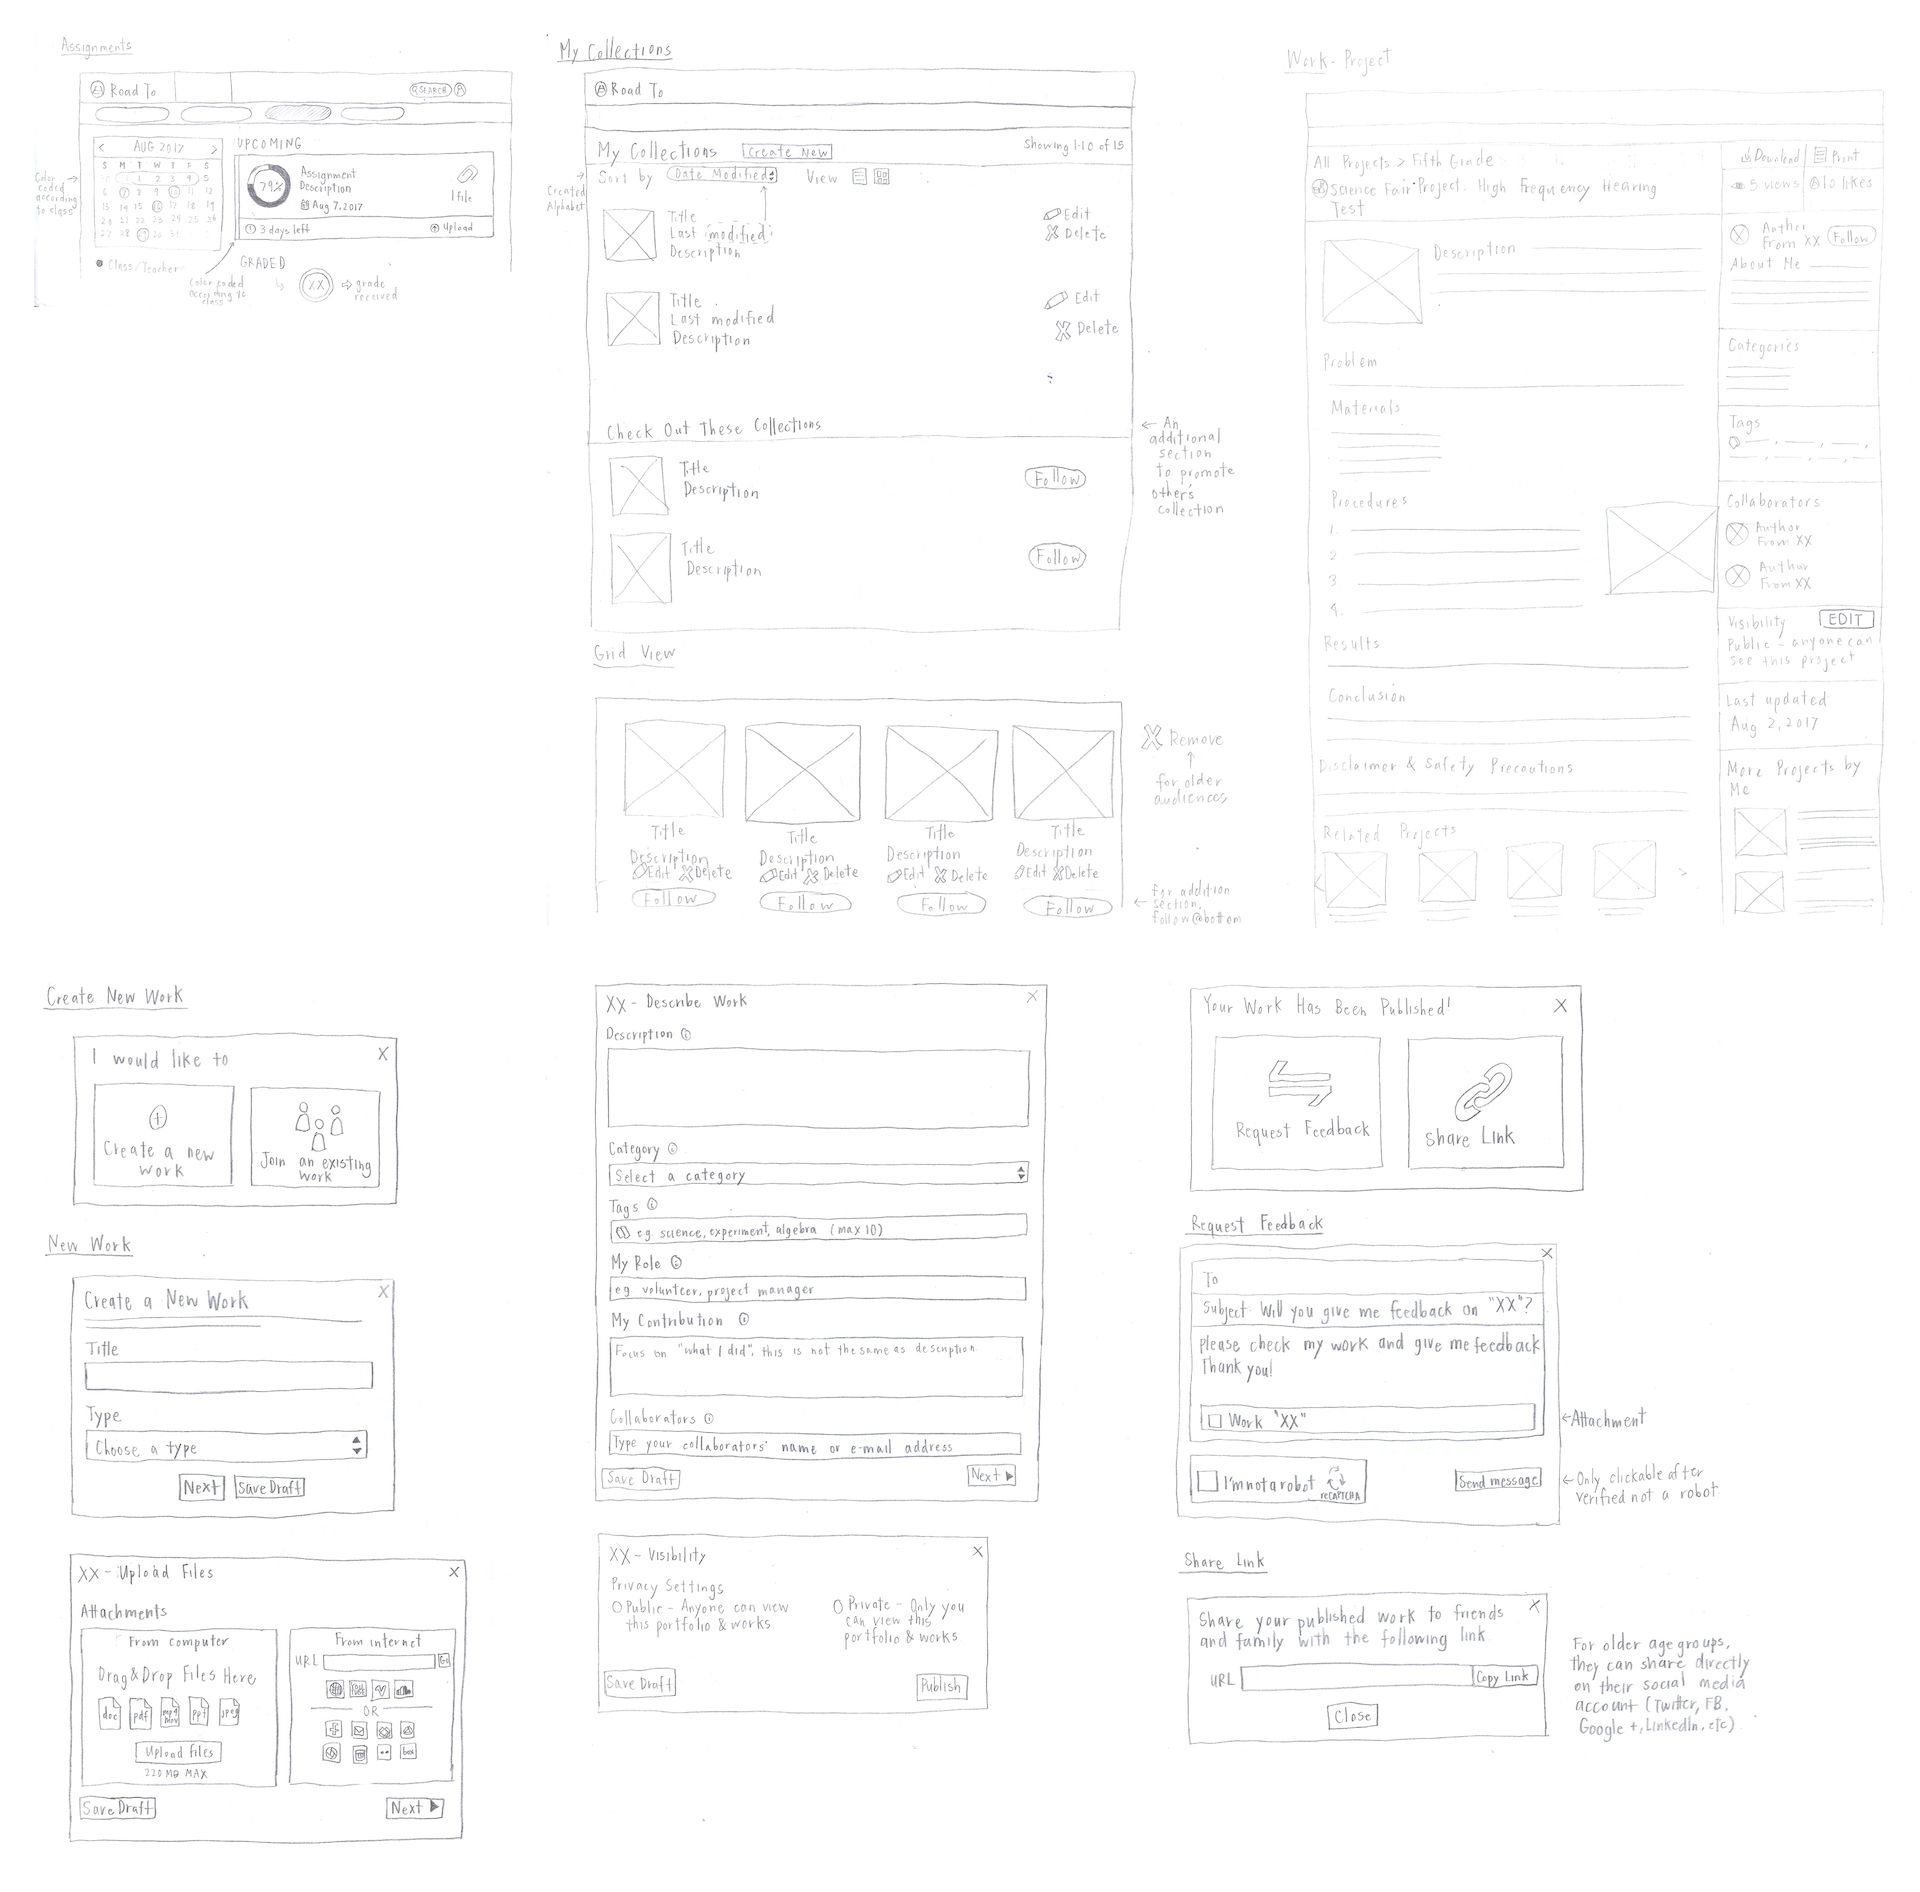 Assignments
Road To
SEARCH
< AUG 2017 >
S M T W T F S
1 2 3 4 5
6 7 8 9 10 11 12
13 14 15 16 17 18 19
20 21 22 23 24 25 26
27 28 29 30 31
Color
coded
according
to class
Class/Teacher
UPCOMING
79%
Assignment
Description
Aug 7, 2017
1 file
3 days left
Upload
Color coded
according to
class
GRADED
XX
grade
received
My Collections
Road To
My Collections
Create New
Showing 1-10 of 15
Sort by
Date Modified
View
Created
Alphabet
Title
Last modified
Description
Edit
Delete
Title
Last modified
Description
Edit
Delete
Check Out These Collections
Title
Description
Follow
Title
Description
Follow
An
additional
section
to promote
other's
collection
Grid View
Title
Description
Edit Delete
Follow
Title
Description
Edit Delete
Follow
Title
Description
Edit Delete
Follow
Title
Description
Edit Delete
Follow
Remove
for older
audiences
for addition
section,
follow@bottom
Work - Project
All Projects > Fifth Grade
Science Fair Project. High Frequency Hearing
Test
Download
Print
5 views
10 likes
Description
Problem
Materials
Procedures
1.
2
3
4.
Results
Conclusion
Disclaimer & Safety Precautions
Related Projects
Author
From XX
Follow
About Me
Categories
Tags
Collaborators
Author
From XX
Author
From XX
Visibility
EDIT
Public - anyone can
see this project
Last updated
Aug 2, 2017
More Projects by
Me
Create New Work
I would like to
X
Create a new
work
Join an existing
work
New Work
Create a New Work
X
Title
Type
Choose a type
Next
Save Draft
XX - Upload Files
X
Attachments
From computer
Drag&Drop Files Here
doc
pdf
mp4
mov
ppt
jpeg
Upload files
220 MB MAX
From internet
URL
Go
OR
box
Save Draft
Next
XX - Describe Work
X
Description
Category
Select a category
Tags
eg. science, experiment, algebra (max 10)
My Role
eg. volunteer, project manager
My Contribution
Focus on "what I did", this is not the same as description.
Collaborators
Type your collaborators' name or e-mail address
Save Draft
Next
XX - Visibility
X
Privacy Settings
Public - Anyone can view
this portfolio & works
Private - Only you
can view this
portfolio & works
Save Draft
Publish
Your Work Has Been Published!
X
Request Feedback
Share Link
Request Feedback
X
To
Subject: Will you give me feedback on "XX"?
Please check my work and give me feedback
Thank you!
Work "XX"
Attachment
I'm not a robot
reCAPTCHA
Send message
Only clickable after
verified not a robot.
Share Link
X
Share your published work to friends
and family with the following link.
URL
Copy Link
Close
For older age groups,
they can share directly
on their social media
account (Twitter, FB,
Google +, LinkedIn, etc)